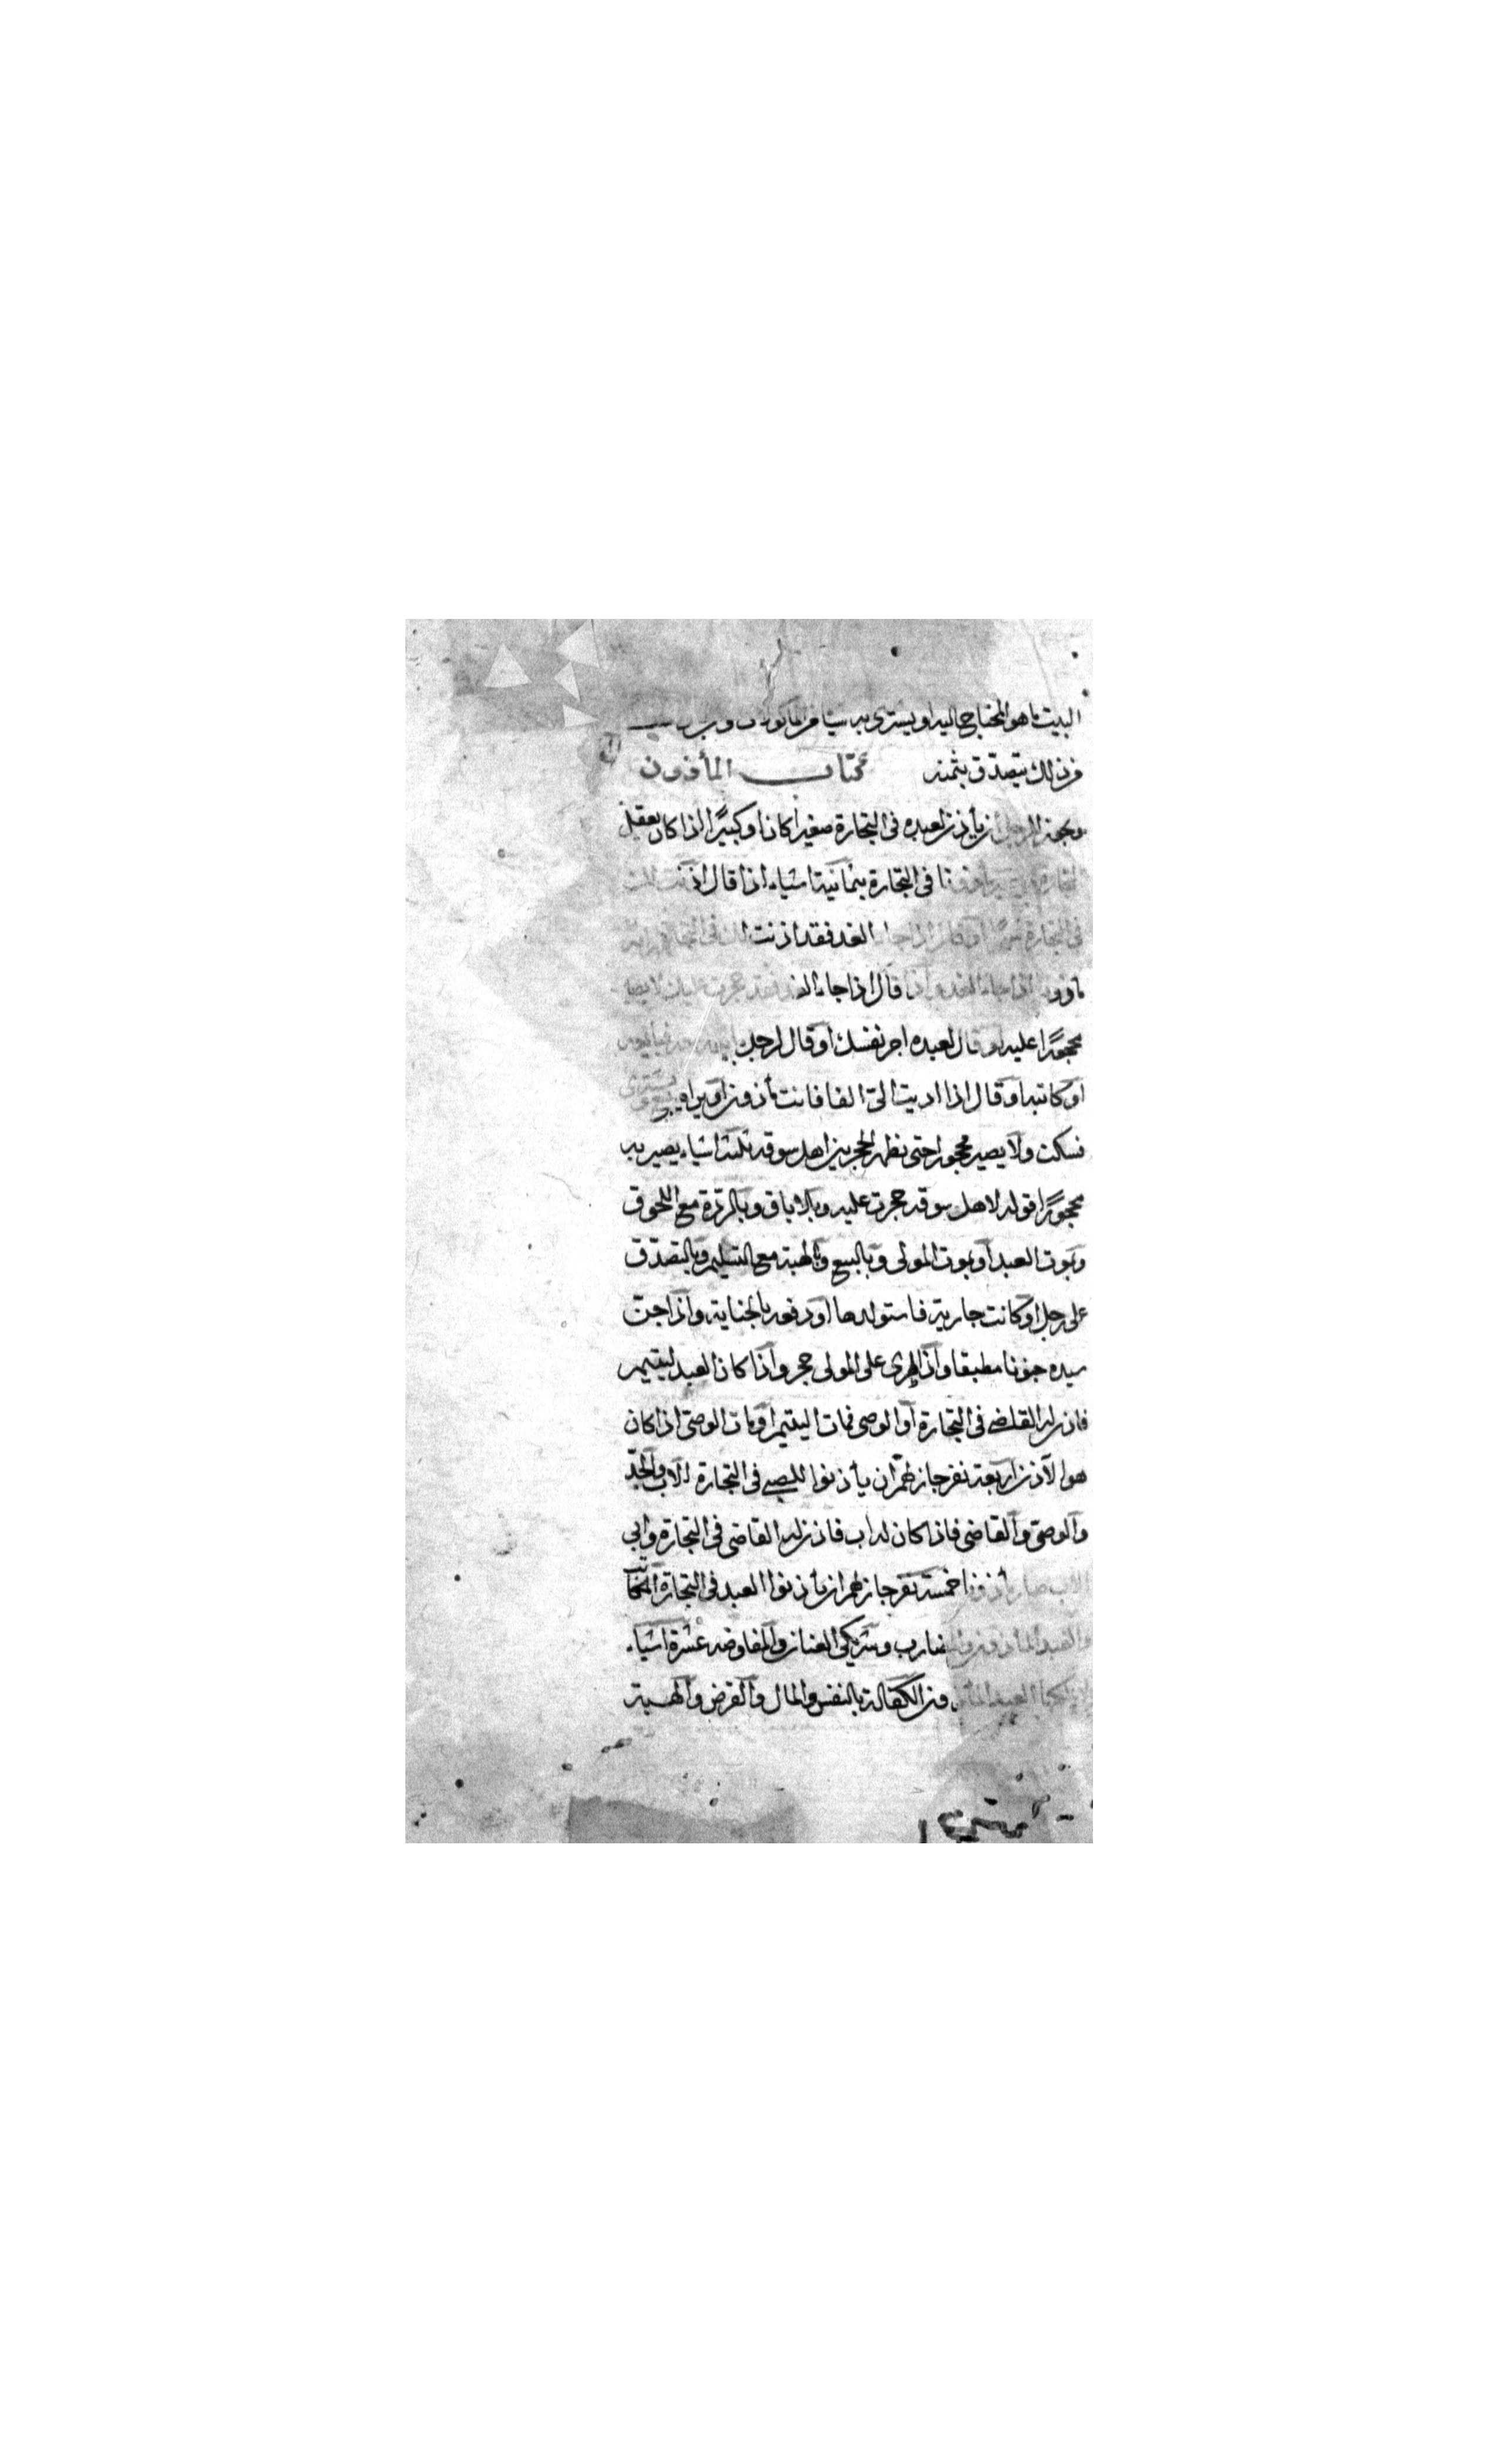 البيت ما هو المحتاج اليه او يشترى به شيا من المأكولات
من ذلك يتصدق بثمنه كتاب المأذون
ويجوز للرجل ان يأذن لعبده فى التجارة صغيرا كان او كبيرًا اذا كان يعقل
التجارة ويصير مأذونا فى التجارة بثمانية اشياء اذا قال اذنت لك
فى التجارة او قال اذا جاء الغد فقد اذنت لك فى التجارة
مأذونا اذا جاء الغد واذا قال اذا جاء الغد فقد حجرت عليك لا يصير
محجورًا عليه لو قال لعبده اجر نفسك او قال لرجل
او كاتبه او قال اذا اديت الىّ الفا فانت مأذون او يراه يشترى
فسكت ولا يصير محجورا حتى يظهر الحجر بين اهل سوقه ثلثة اشياء يصير به
محجورًا قوله لاهل سوقه حجرت عليه وبالاباق وبالردّة مع اللحوق
وبموت العبد او بموت المولى وبالبيع وبالهبة مع التسليم وبالتصدّق
على رجل او كانت جارية فاستولدها او دفعه بالجناية واذا جنّ
سيده جنونا مطبقا واذا على المولى حجر واذا كان العبد ليتيم
فاذن له القاضى فى التجارة او الوصى فمات اليتيم او مات الوصىّ اذا كان
هو الآذن اربعة نفر جاز لهم ان يأذنوا للصبى فى التجارة الاب والجدّ
والوصىّ والقاضى فاذا كان له اب فاذن له القاضى فى التجارة وابى
الاب صار مأذونا خمسة نفر جاز لهم ان يأذنوا العبد فى التجارة المكاتب
والعبد المأذون والمضارب وشريكى العنان والمفاوضه عشرة اشياء
لا يملكها العبد المأذون الكفالة بالنفس والمال والقرض والهبة